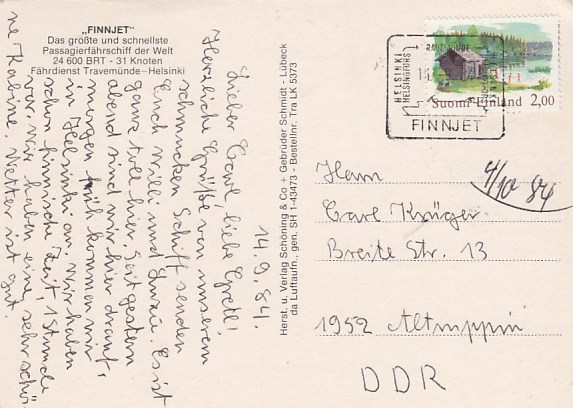 „FINNJET"
Das größte und schnellste
Passagierfährschiff der Welt
24 600 BRT - 31 Knoten
Fährdienst Travemünde–Helsinki
14.9.84.
Lieber Carl, liebe Grete!
Herzliche Grüße von unserem
schmucken Schiff senden
Euch Willi und Es ist
ganz toll hier. Seit gestern
abend sind wir hier drauf,
morgen früh kommen wir
in Helsinki an. Wir haben
schon finnische Zeit, 1 Stunde
vor. Wir haben eine sehr schö-
ne Kabine. Wetter ist gut.
Herst. u. Verlag Schöning & Co + Gebrüder Schmidt · Lübeck
da Luftaufn., geh. SH 1-43473 - Bestellnr. Tra LK 5373
HELSINKI
HELSINGFORS
FINNJET
Suomi Finland 2,00
4/10 84
Herrn
Carl Krüger
Breite Str. 13
1952 Altruppin
DDR